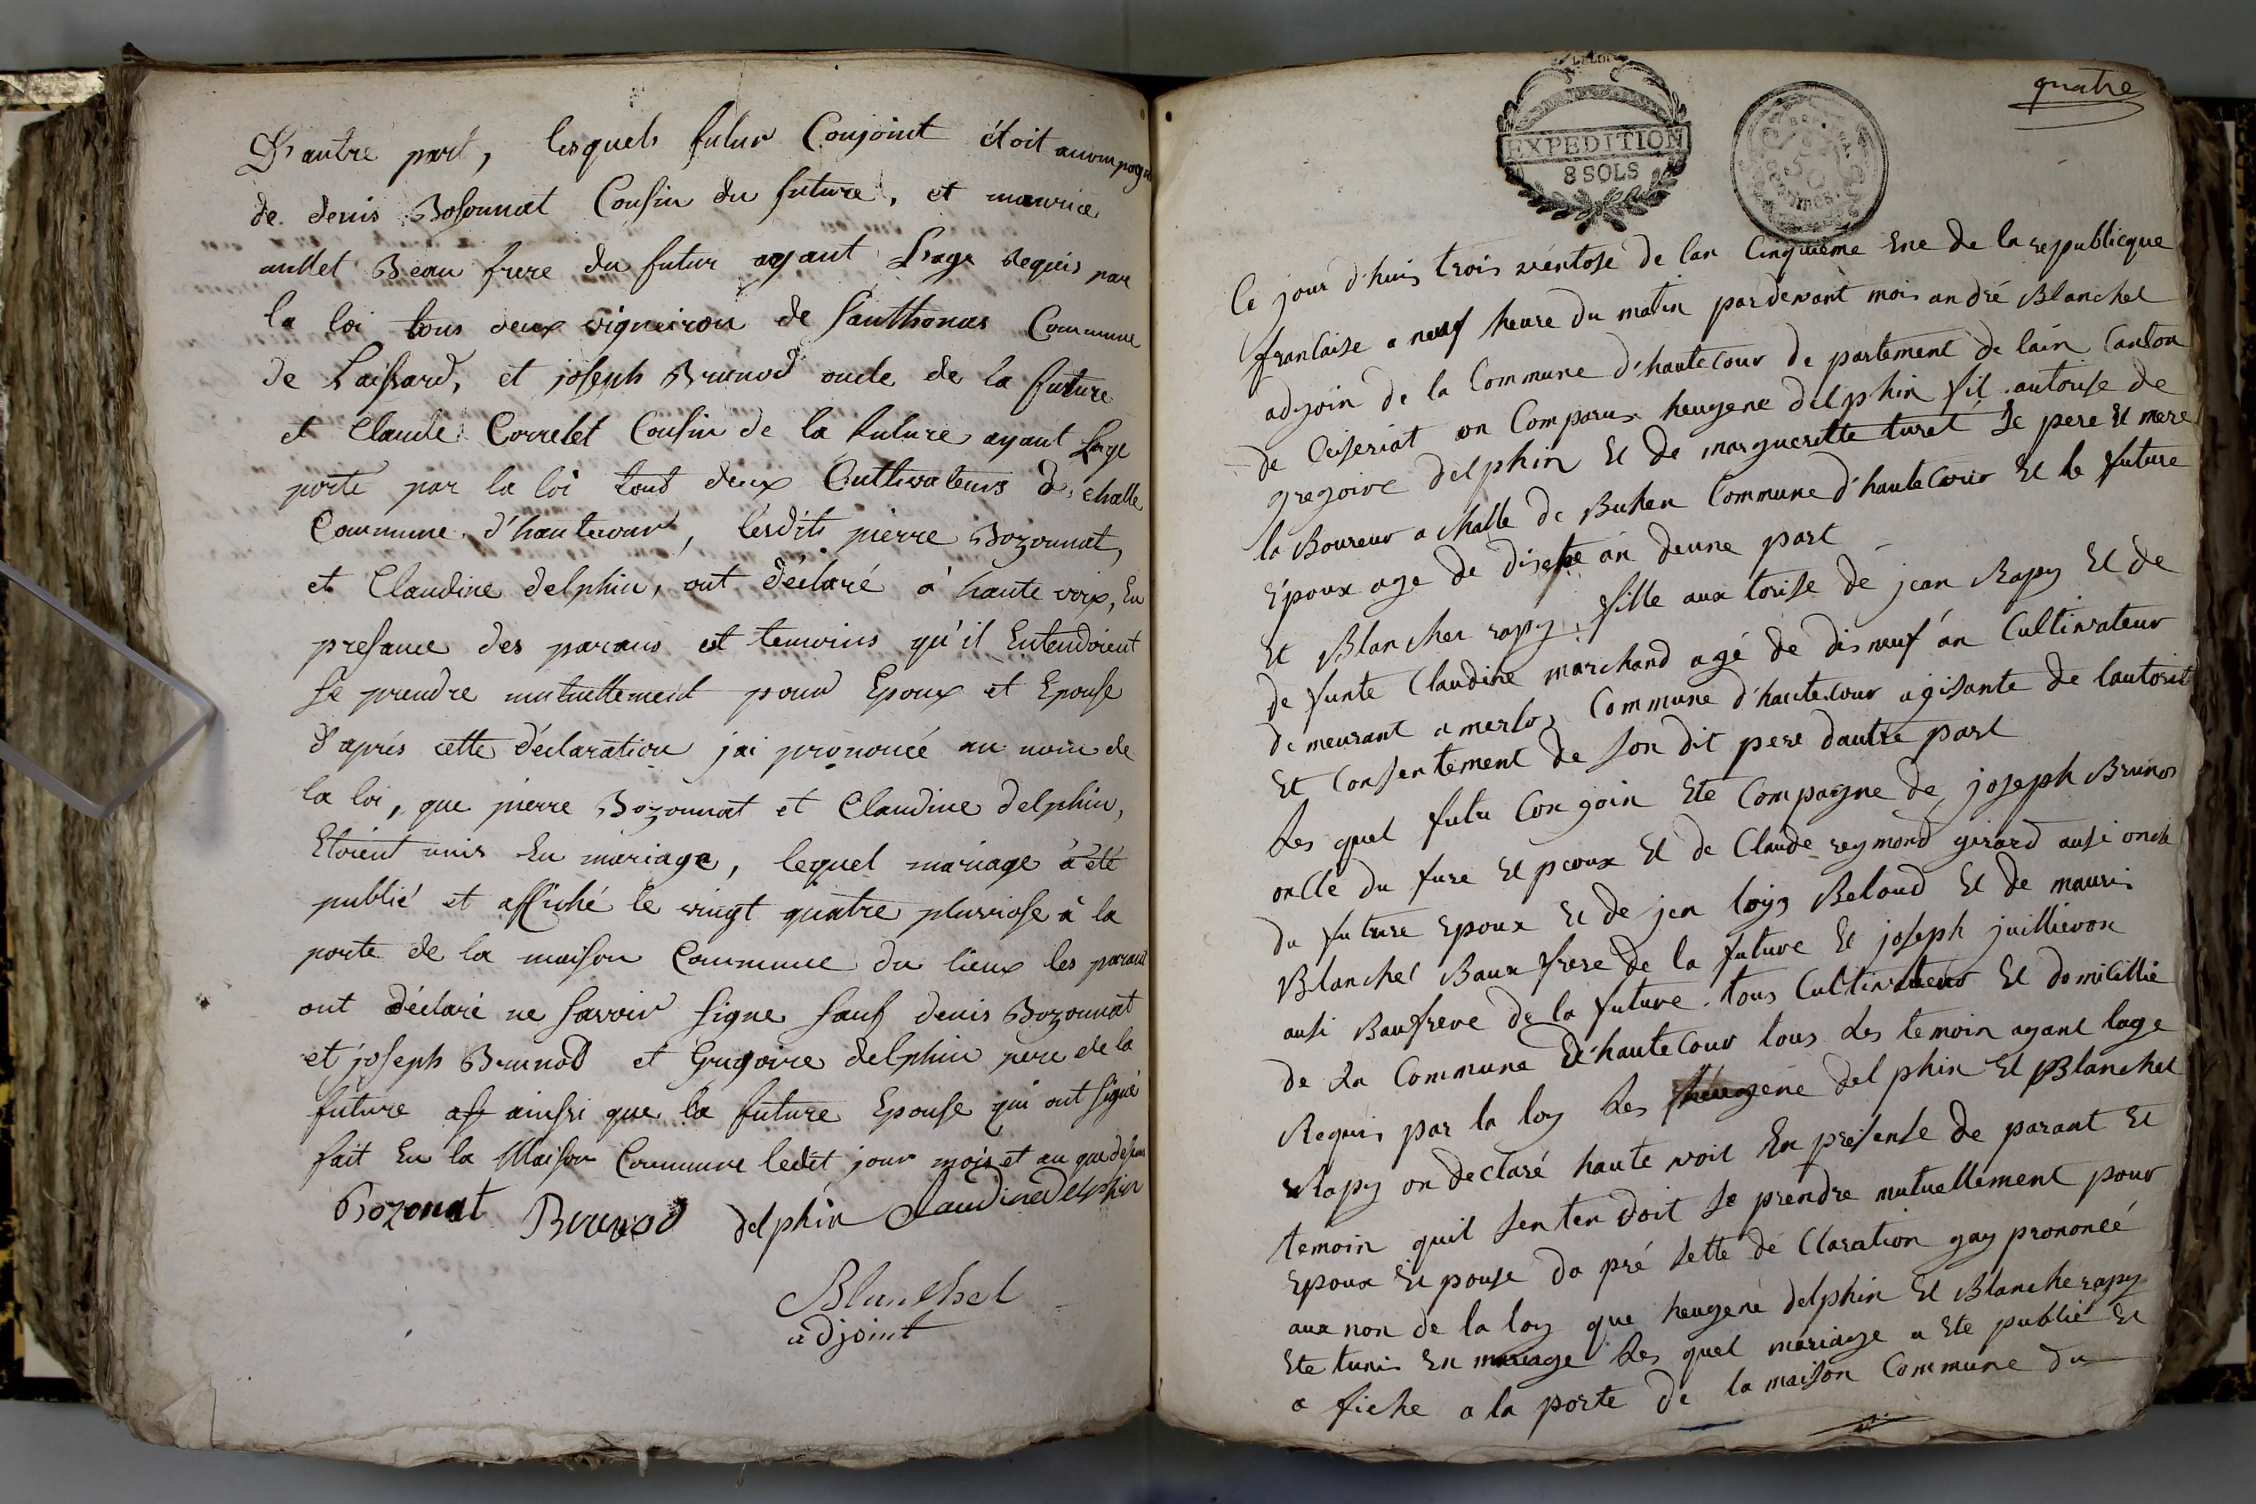 D'autre part, lesquels futur Conjoint étoit accompagné
de denis Bosonnat Cousin du future, et maurice
audet Beau frere du futur ayant Lage Requis par
la loi tous deux vigneiron de Commune
de et joseph Brunod oncle de la future
et Claude Correlet Cousin de la future ayant Lage
porté par la loi tout deux Cultivateurs de challe
Commune d'hautecour, lesdits pierre Bozonnat,
et Claudine delphin, ont déclaré à haute voix, En
presance des parans et temoins qu'il Entendoient
se prendre mutuellement pour Epoux et Epouse
d'aprés cette déclaration jai prononcé au nom de
la loi, que pierre Bozonnat et Claudine delphin,
Etoient unis En mariage, lequel mariage à été
publié et affiché le vingt quatre pluviose à la
porte de la maison Commune du lieux les parans
ont déclaré ne savoir signe sauf denis Bozonnat
et joseph Brunod et Grigoire delphin pere de la
future ainssi que la future Epouse qui ont signé
fait En la Maison Commune ledit jour mois et an que dessus
Bozonat Brunod delphin Claudine delphin
Blanchet
adjoint
quatre
LA LOI
EXPEDITION
8 SOLS
50
centimes
Ce jour d'huis trois véntose de lan Cinquieme Ene de la republicque
francaise a neuf heure du matin pardevant moi andré Blanchet
adjoin de la Commune d'hautecour de partement de lain Canton
de Ceiseriat on Comparux heugene delphin fil autorise de
gregoire delphin Et de marguerette turet Se pere Et mere
la Boureur a challe de Buhen Commune d'hautecour Et le future
Epoux age de án deune part
Et Blanchet rapy fille aux torise de jean Rapy Et de
de funte Claudine marchand agé de dis neuf án Cultivateur
demeurant a merlo Commune d'hautecour agisante de lautorit
Et Consentement de son dit pere dautre part
Les quel futu Con join Ete Compagne de joseph Brunod
oncle du fure Epoux Et de Claude reymond girard ausi oncle
du future epoux Et de jen loys Beloud Et de mauris
Blanchet Baux frere de la future Et joseph juillievon
ausi Baufrere de la future tous Cultivateur Et domicillié
de La Commune d'hautecour tous Les temoin ayant lage
Requis par la loy Les heugene delphin Et Blanchet
Rapy on declaré haute voit En présense de parant Et
temoin quil senten doit se prendre mutuellement pour
Epoux Et pouse da pré sette dé Claration gay prononcé
aux non de la loy que heugene delphin Et Blanche rapy
Ete tunis En mariage Les quel mariage a Ete publié Et
a fiche a la porte de la maison Commune du